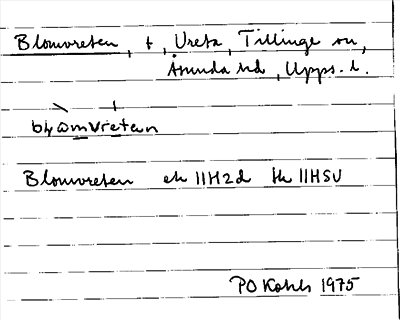 Blomvreten, t, Vreta, Tillinge sn,
Åsunda hd, Upps. l.
blωmvretεn
Blomvreten ek 11H2d tk 11HSV
PO Kohls 1975